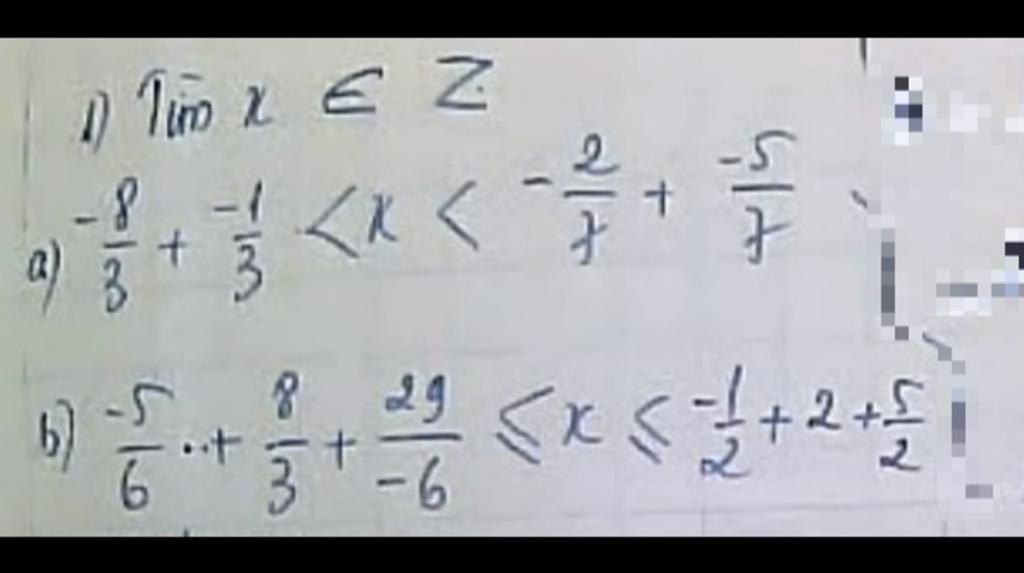 1) Tìm x ∈ Z
a) -8/3 + -1/3 < x < -2/7 + -5/7
b) -5/6 + 8/3 + 29/-6 ≤ x ≤ -1/2 + 2 + 5/2